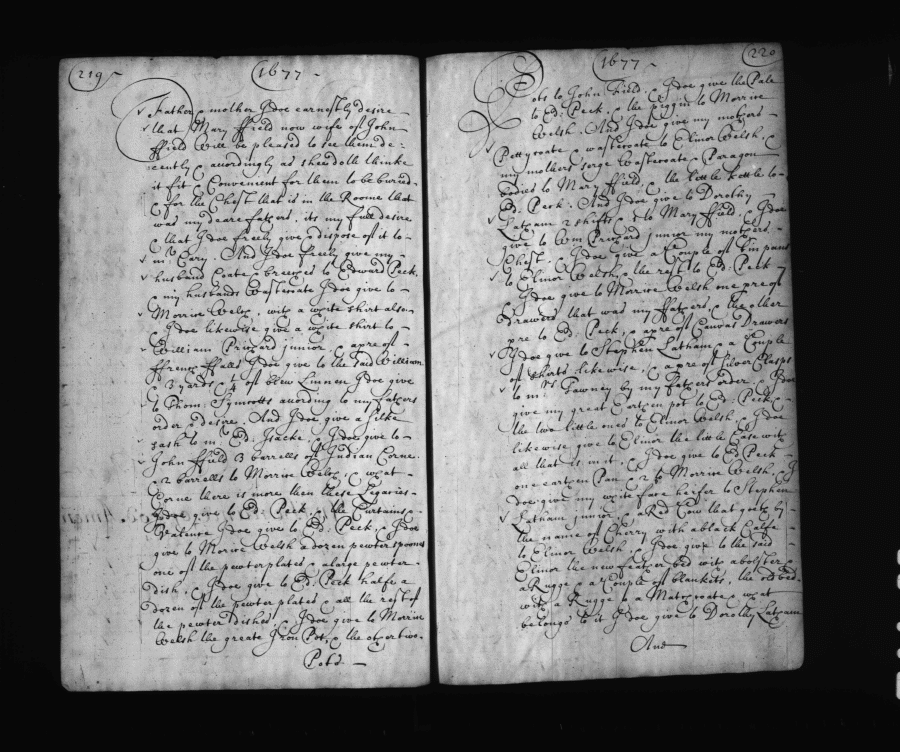 219
1677
Father & mother I doe earnestly desire
that Mary ffield now wife of John
ffield will be pleased to see them de=
cently & acordingly as shee doth thinke
it fit & Convenient for them to be buried
& for the Chest that is in the Roome that
was my deare fathers, its my full desire
& that I doe freely give & dispose of it to
mr Cary. And I doe freely give my
husbands Coate & breeches to Edward Peck,
& my husbands Wastcoate I doe give to
Morrice Welch, with a white shirt also
I doe likewise give a white shirt to
William Prichard junior & a pre of
ffrench ffalls I doe give to the said William
& 3 yards & 1/4 of blew Linnen I doe give
to Thom: Symotts acording to my fathers
order & desire. And I doe give a Silke
sash to mr Ed: Isacke, & I doe give to
John ffield 3 barrells of Indian Corne
& 2 barrells to Morrice Welch, & what
Corne there is more then these Legacies
I doe give to Ed: Peck, & the Curtains &
Valence I doe give to Ed: Peck, & I doe
give to Morrice Welsh a dozen pewter spoones
one of the pewter plates & a large pewter
dish, & I doe give to Ed: Peck halfe a
dozen of the pewter plates & all the rest of
the pewter dishes, & I doe give to Morrice
Welsh the greate Iron Pot, & the other two
Pots
220
1677
Pots to John Field, & I doe give the Pale
to Ed: Peck, & the piggin to Morrice
Welsh. And I doe give my mothers
Pettycoate & wastcoate to Elinor Welsh, &
my mothers serge Wastcoate & Paragon
bodies to Mary ffield, & the little kettle to
Ed: Peck. And I doe give to Dorothy
Latham 2 shifts & to Mary ffield, I doe
give to Wm Prichard junior my mothers
Chest, & I doe give a Couple of tin pans
to Elinor Welsh, & the rest to Ed: Peck
& I doe give to Morrice Welsh one pre of
Drawers that was my ffathers, & the other
pre to Ed: Peck, & a pre of Canvas Drawers
I doe give to Stephen Latham & a Couple
of shirts likewise, & a pre of silver Clasps
to mrs Tawney by my fathers order, & I doe
give my great Earthen pot to Ed: Peck &
the two little ones to Elinor Welsh, & I doe
likewise give to Elinor the little Case with
all that is in it, & I doe give to Ed: Peck
one earthen Pan & 2 to Morrice Welsh & I
doe give my white face heifer to Stephen
Latham junior, & a Red Cow that goeth by
the name of Cherry with a black Calfe
to Elinor Welsh, & I doe give to the said
Elinor the new feather bed with a bolster &
a Rugge & a Couple of blankets, the old bed
with a Rugge & a Matchcoate & what
belongs to it I doe give to Dorothy Latham
And